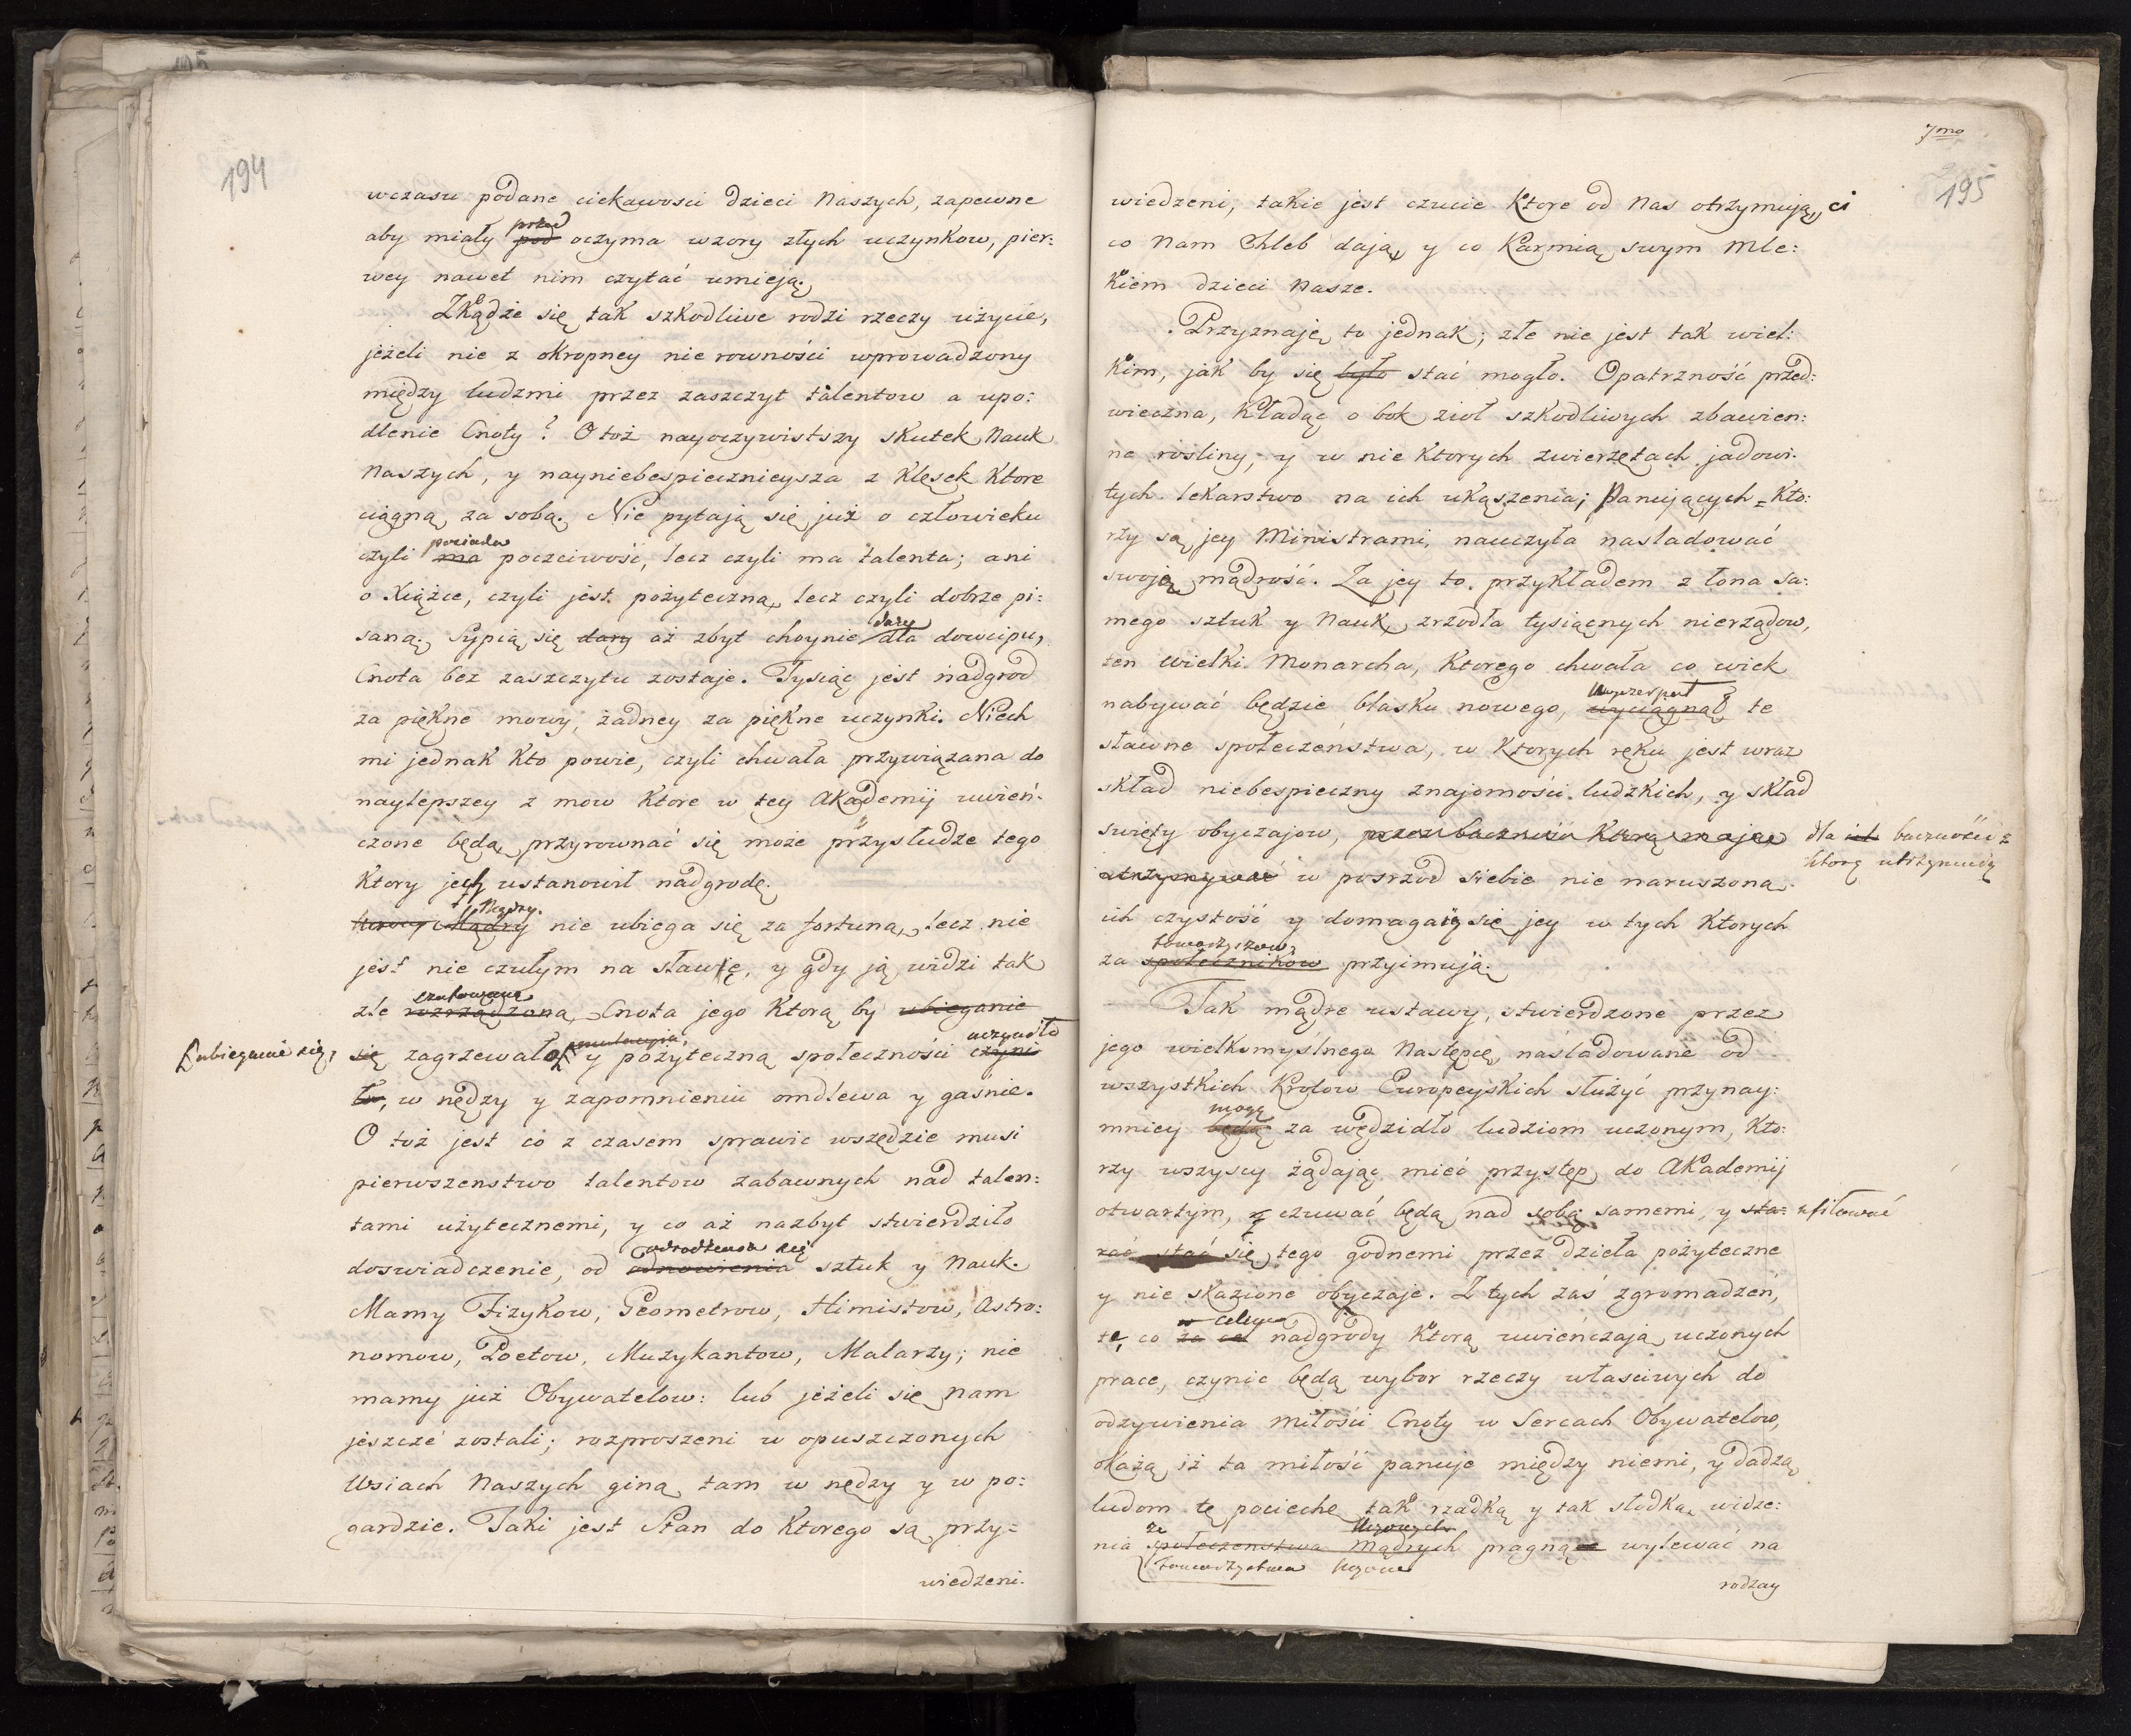 194
wczasu podane ciekawosci dzieci Naszych, zapewne
przed
aby miały pod oczyma wzory złych uczynkow, pier:
wey nawet nim czytać umieją.
Zkądże się tak szkodliwe rodzi rzeczy użycie,
jeżeli nie z okropney nie rowności wprowadzony
między ludzmi przez zaszczyt talentow a upo:
dlenie Cnoty? Otoż nayoczywistszy skutek Nauk
Naszych, y nayniebespiecznieysza z Klęsek Ktore
ciągną za sobą. Nie pytają się już o człowieku
posiada
czyli ma poczciwość, lecz czyli ma talenta; ani
o Xiążce, czyli jest pożyteczną, lecz czyli dobrze pi:
dary
saną. Sypią się dary aż zbyt choynie dla dowcipu,
Cnota bez zaszczytu zostaje. Tysiąc jest nadgrod
za piękne mowy, żadney za piękne uczynki. Niech
mi jednak Kto powie, czyli chwała przywiązana do
naylepszey z mow Ktore w tey Akademij uwień:
czone będą, przyrownać się może przysłudze tego
Ktory jey ustanowił nadgrodę.
Mądry
Mądry nie ubiega się za fortuną, lecz nie
jest nie czułym na sławę, y gdy ją widzi tak
szafowaną
źle rozrządzoną, Cnota jego Ktorą by ubieganie
emulacyia uczyniło
ubieganie się, się zagrzewało y pożyteczną społeczności czyni
ło, w nędzy y zapomnieniu omdlewa y gaśnie.
O toż jest co z czasem sprawic wszędzie musi
pierwszenstwo talentow zabawnych nad talen:
tami użytecznemi, y co aż nazbyt stwierdziło
odrodzenia się
doswiadczenie, od odnowienia sztuk y Nauk.
Mamy Fizykow, Geometrow, Himistow, Astro:
nomow, Poetow, Muzykantow, Malarzy; nie
mamy już Obywatelow: lub jeżeli się nam
jeszcze zostali; rozproszeni w opuszczonych
Wsiach Naszych giną tam w nędzy y w po:
gardzie. Taki jest Stan do Ktorego są przy=
wiedzeni.
7mo
195
wiedzeni, takie jest czucie Ktore od Nas otrzymują, ci
co Nam Chleb dają, y co Karmią swym Mle:
Kiem dzieci Nasze.
Przyznaję to jednak; złe nie jest tak wiel:
Kim, jak by się było stać mogło. Opatrzność przed:
wieczna, Kładąc o bok zioł szkodliwych zbawien:
ne rośliny, y w nie Ktorych zwierzętach jadowi:
tych lekarstwo na ich ukąszenia; Panujących Kto:
rzy są jey Ministrami, nauczyła nasladować
swoję mądrość. Za jey to przykładem z łona sa:
mego sztuk y Nauk zrzodła tysiącnych nierządow,
ten wielki Monarcha, Ktorego chwała co wiek
wyczerpał
nabywać będzie blasku nowego, wyciągnął te
sławne społeczeństwa, w Ktorych ręku jest wraz
skład niebespieczny znajomości ludzkich, y skład
swięty obyczajow, przez baczność Ktorą mając dla ich baczności z
Ktorą utrzymują
utrzymywać w posrzod siebie nie naruszoną
ich czystość y domagaią się jey w tych Ktorych
towarzyszow
za społecznikow przyimują.
Tak mądre ustawy, stwierdzone przez
jego wielkomyślnego Następcę, naśladowane od
wszystkich Krolow Europeyskich służyć przynay:
mogą
mniey będą za wędzidło ludziom uczonym, Kto:
rzy wszyscy żądając mieć przystęp do Akademij
otwartym, czuwać będą nad sobą samemi, y sta= usiłować
rać stać się tego godnemi przez dzieła pożyteczne
y nie skażone obyczaje. Z tych zaś zgromadzeń,
w celu
te, co za cel nadgrody Ktorą uwieńczają uczonych
prace, czynic będą wybor rzeczy własciwych do
odzywienia miłości Cnoty w Sercach Obywatelow,
okażą iż ta miłość panuje między niemi, y dadzą
ludom tę pociechę tak rzadką y tak słodką widze:
że Uczonych
nia społeczenstwa Mądrych pragną wylewać na
towarzystwa Uczone
rodzay